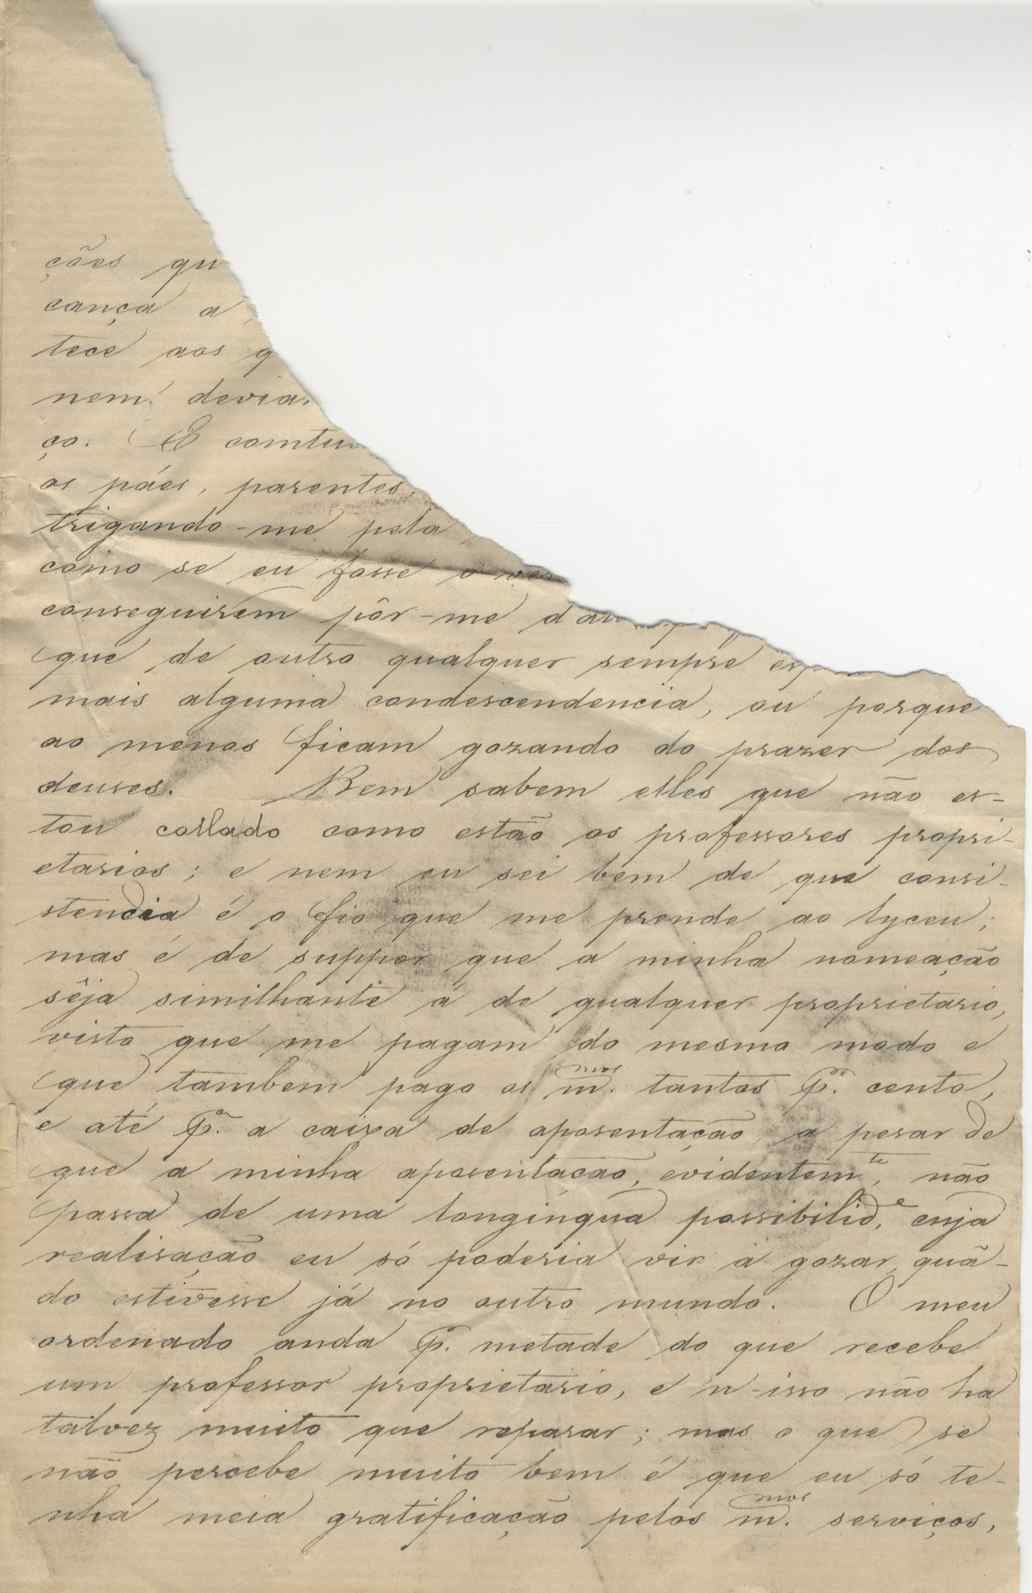 ções qu
cança a
tece aos q
nem devia
ço. E comtu
os páes, parentes,
trigando-me pela
como se eu fosse o
conseguirem pôr-me
que de outro qualquer sempre
mais alguma condescendencia, ou porque
ao menos ficam gozando do prazer dos
deuses. Bem sabem elles que não es-
tou collado como estão os professores propri-
etarios; e nem eu sei bem de que consi-
stencia é o fio que me prende ao lyceu;
mas é de suppor que a minha nomeação
sêja similhante á de qualquer proprietario,
visto que me pagam do mesmo modo e
que tambem pago os m.mos tantos p.r cento,
e até p.a a caixa de aposentação, a pesar de
que a minha aposentacão, evidentem.te, não
passa de uma longinqua possibilid.e, cuja
realisação eu só poderia vir a gozar quã-
do estivesse já no outro mundo. O meu
ordenado anda p.r metade do que recebe
um professor proprietario, e n-isso não ha
talvez muito que reparar; mas o que se
não percebe muito bem é que eu só te-
nha meia gratificação pelos m.mos serviços,